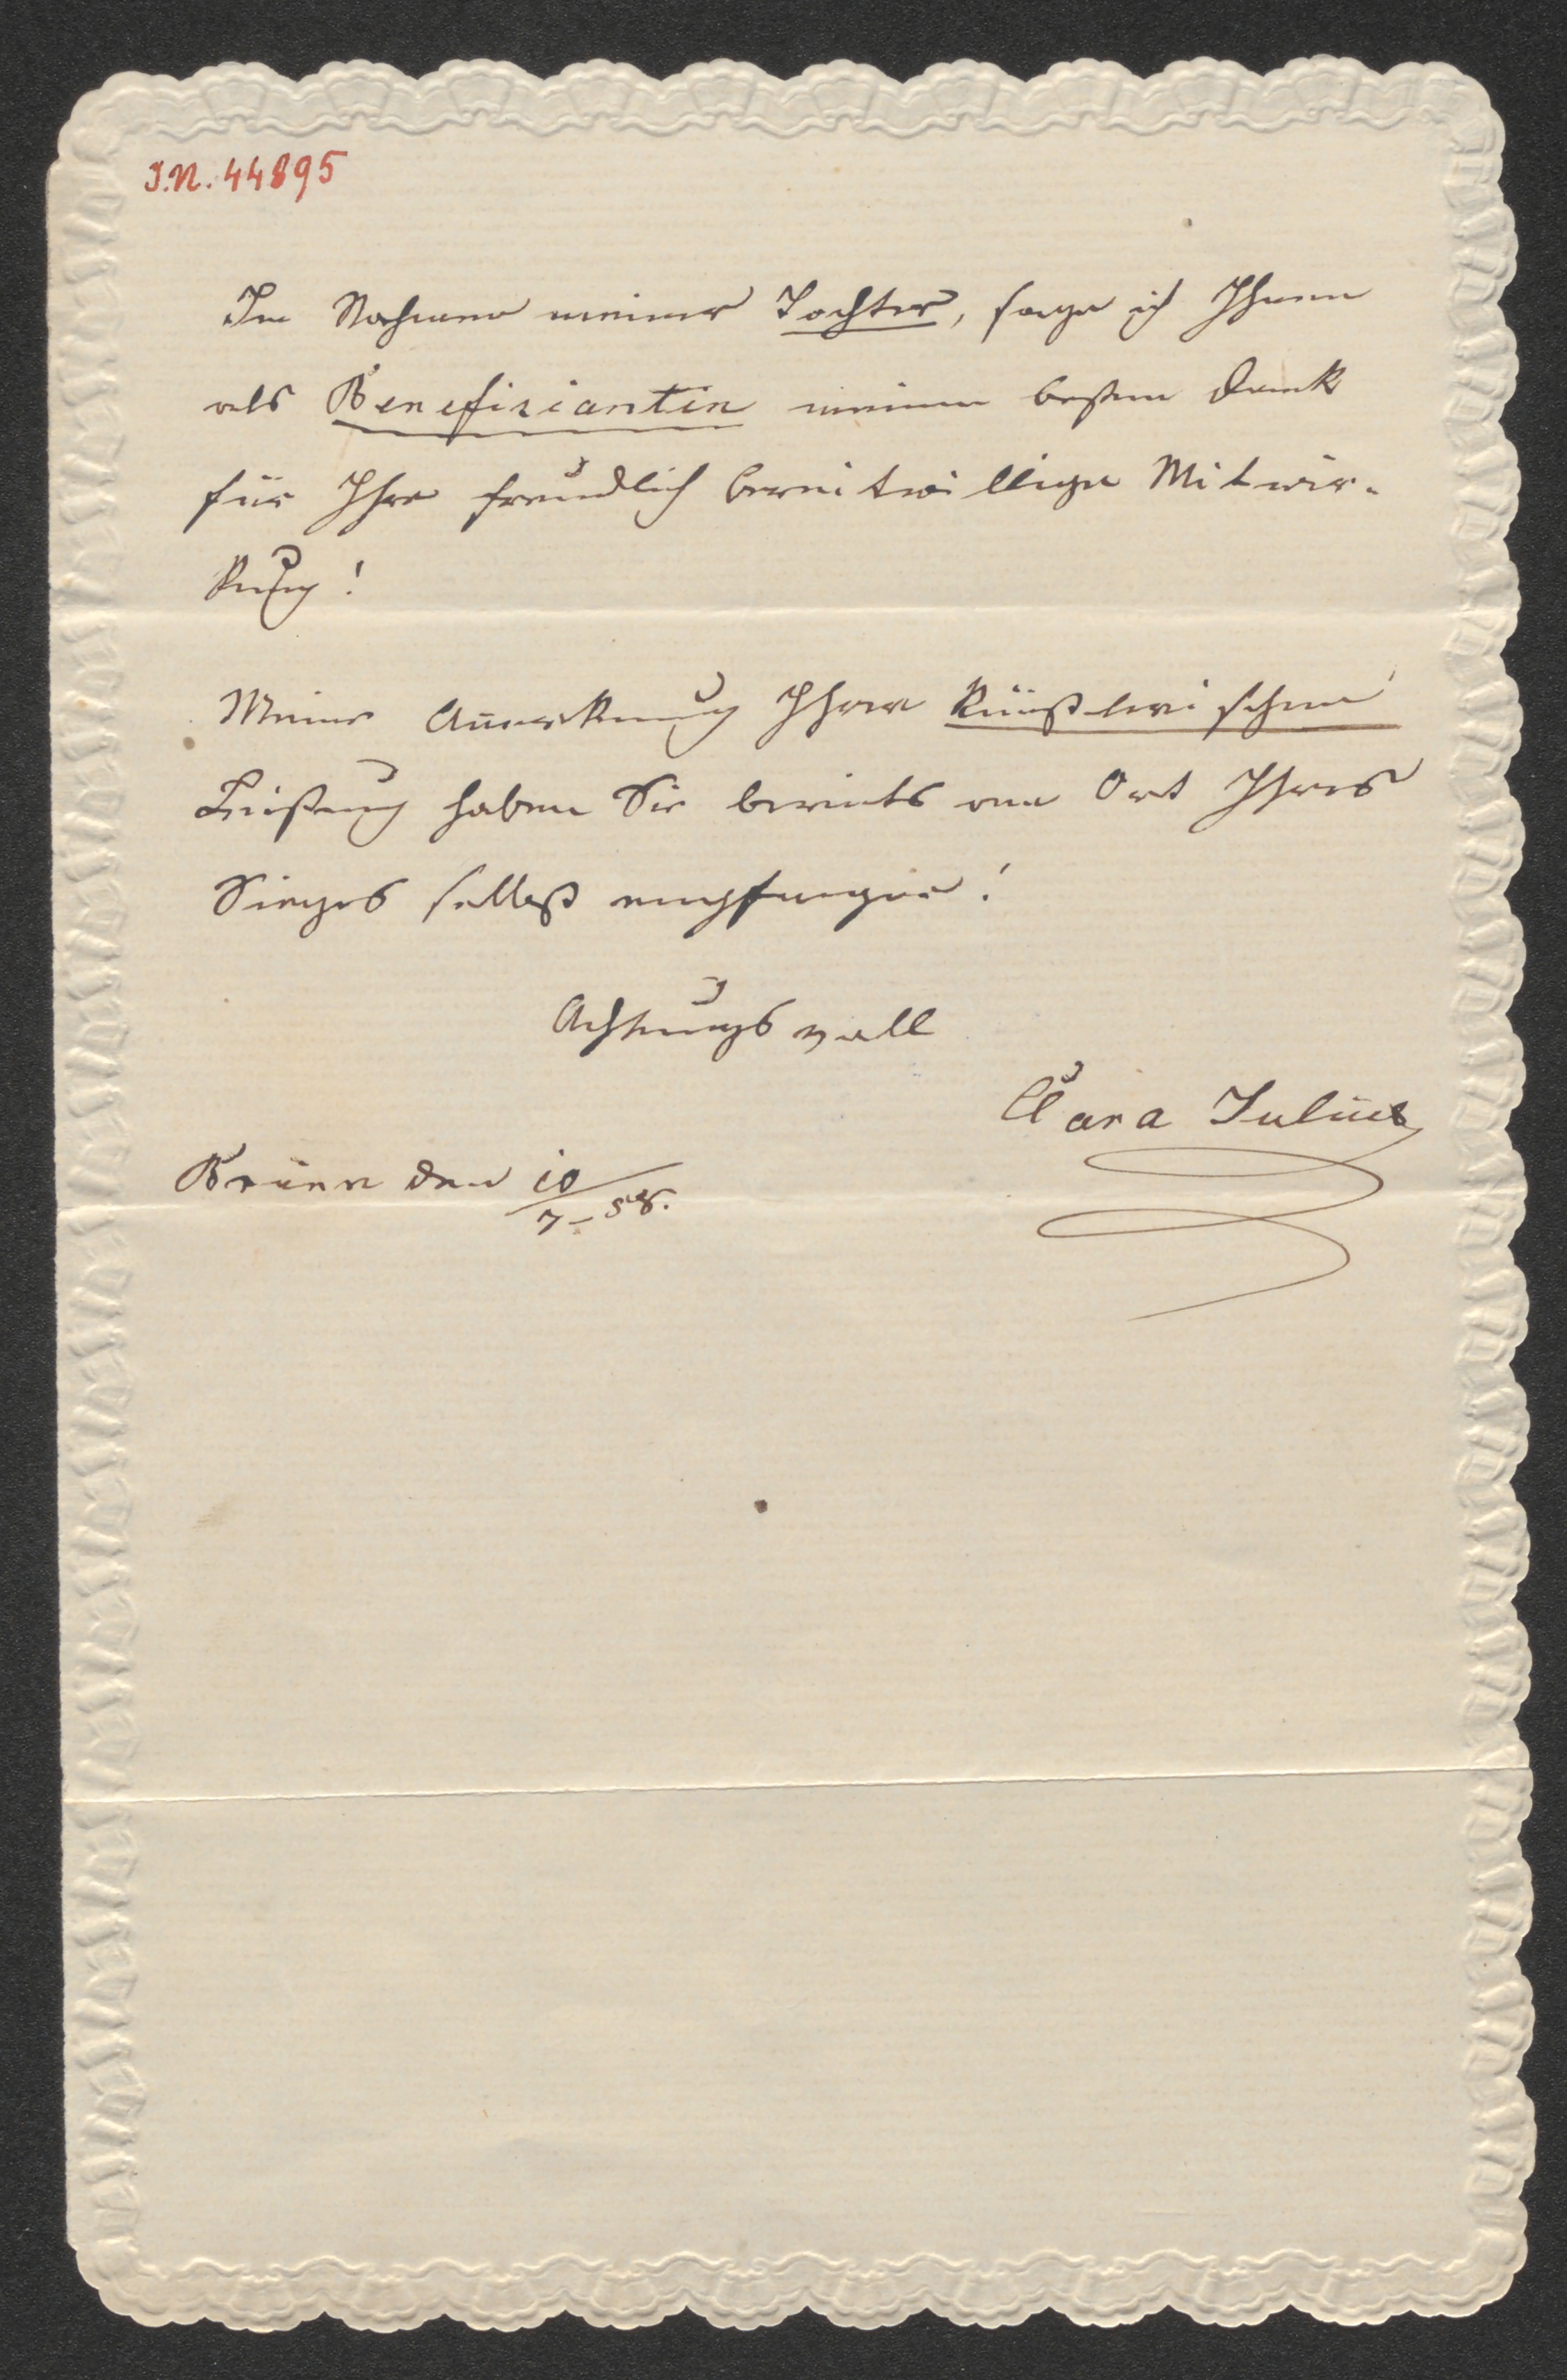 I.N. 44895
Im Nahmen meiner Tochter, sage ich Ihnen
als Benefiziantin meinen besten Dank
für Ihre freundlich bereitwillige Mitwir-
kung!
Meine Anerkennung Ihrer künstlerischen
Leistung haben Sie bereits am Ort Ihres
Sieges selbst empfangen!
Achtungsvoll
Clara Julius
Brünn den 10/7-58.